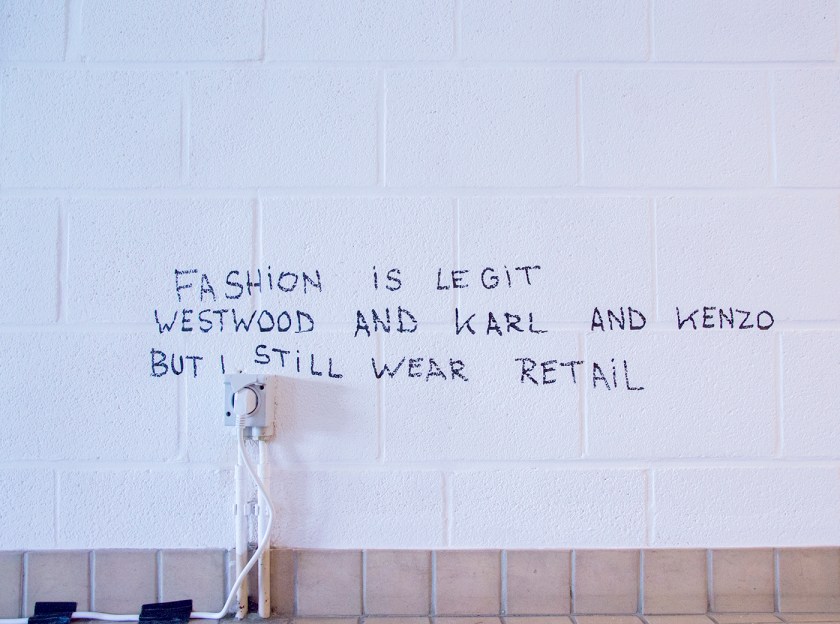 FASHiON iS LEGiT
WESTWOOD AND KARL AND KENZO
BUT I STiLL WEAR RETAiL